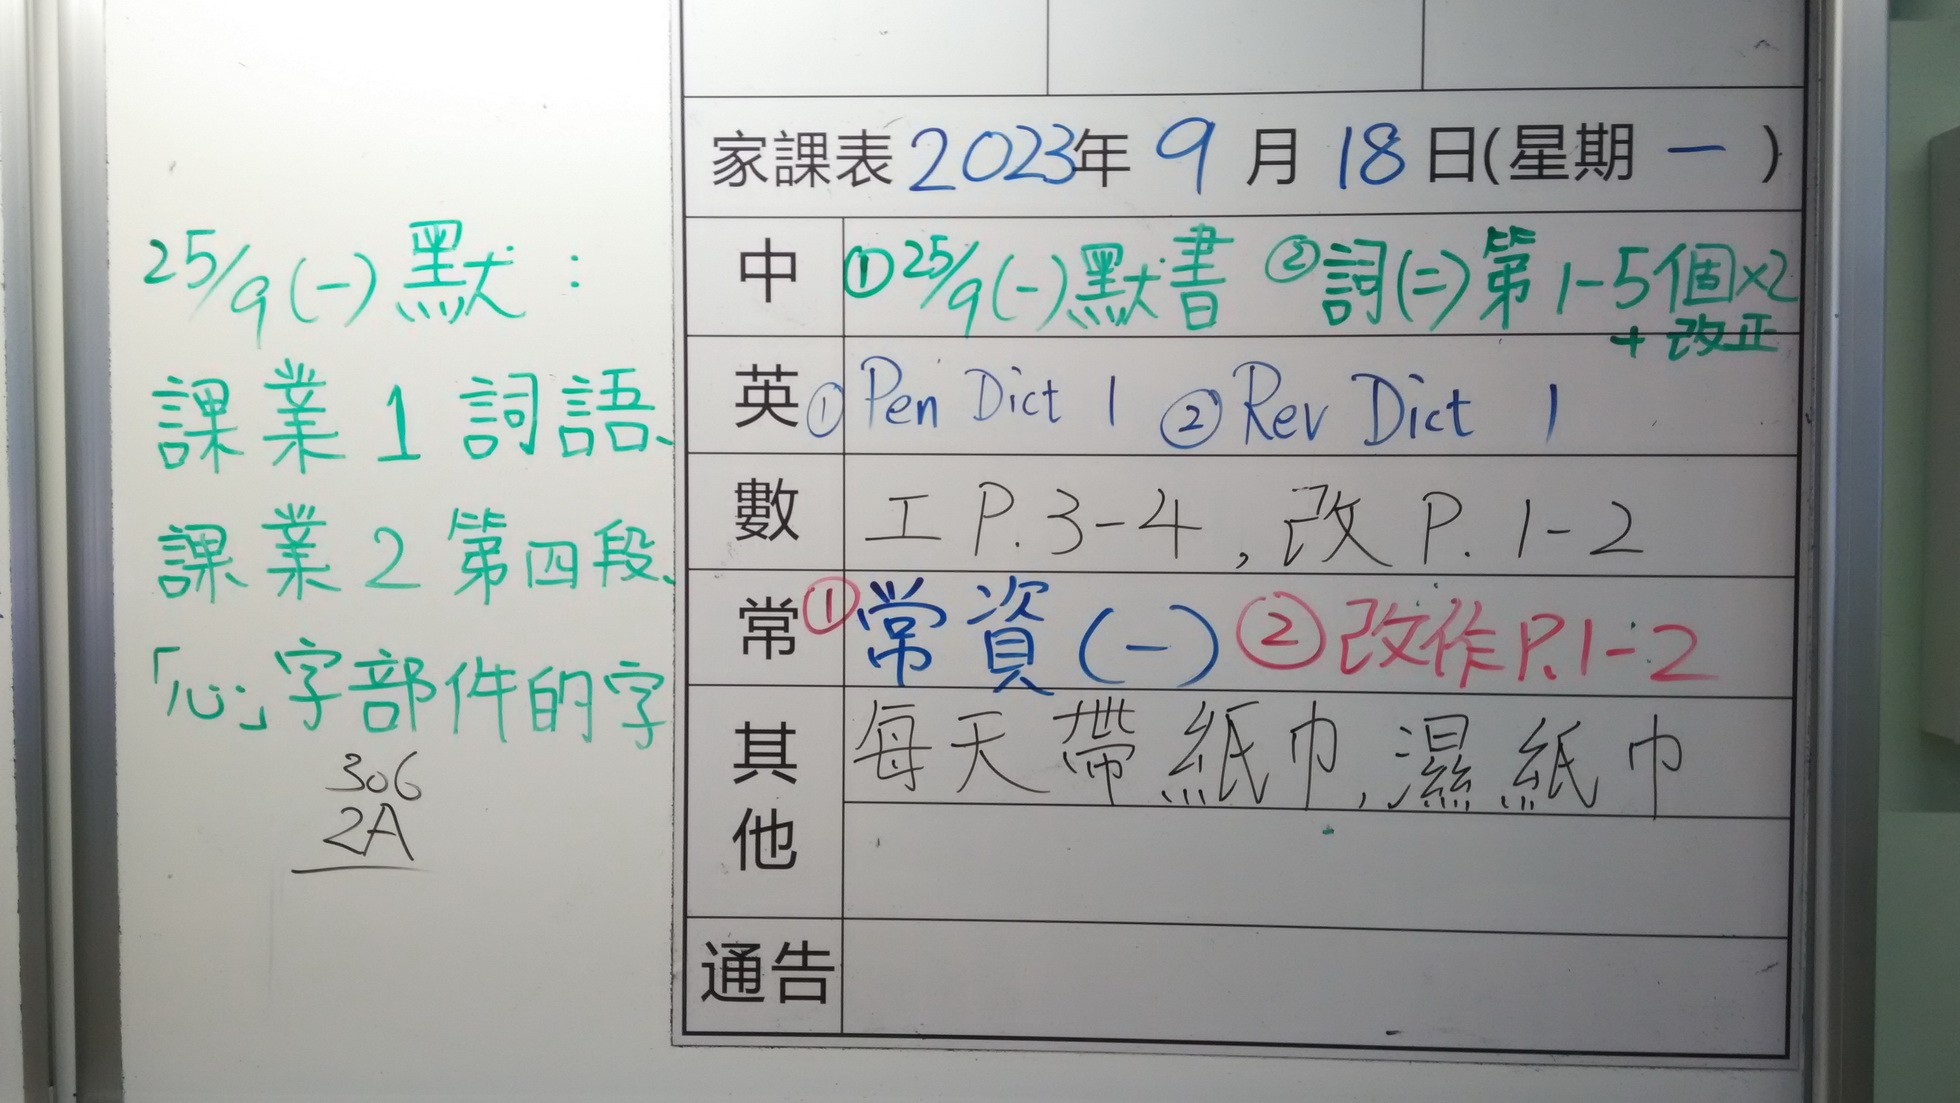 25/9(一)默:
課業1詞語、
課業2第四段、
「心」字部件的字
306
2A
家課表2023年9月18日(星期一)
中 ①25/9(一)默書 ②詞(二)第1-5個×2
+改正
英 ①Pen Dict 1 ②Rev Dict 1
數 工P.3-4,改P.1-2
常 ①常資(一) ②改作P.1-2
其他 每天帶紙巾,濕紙巾
通告